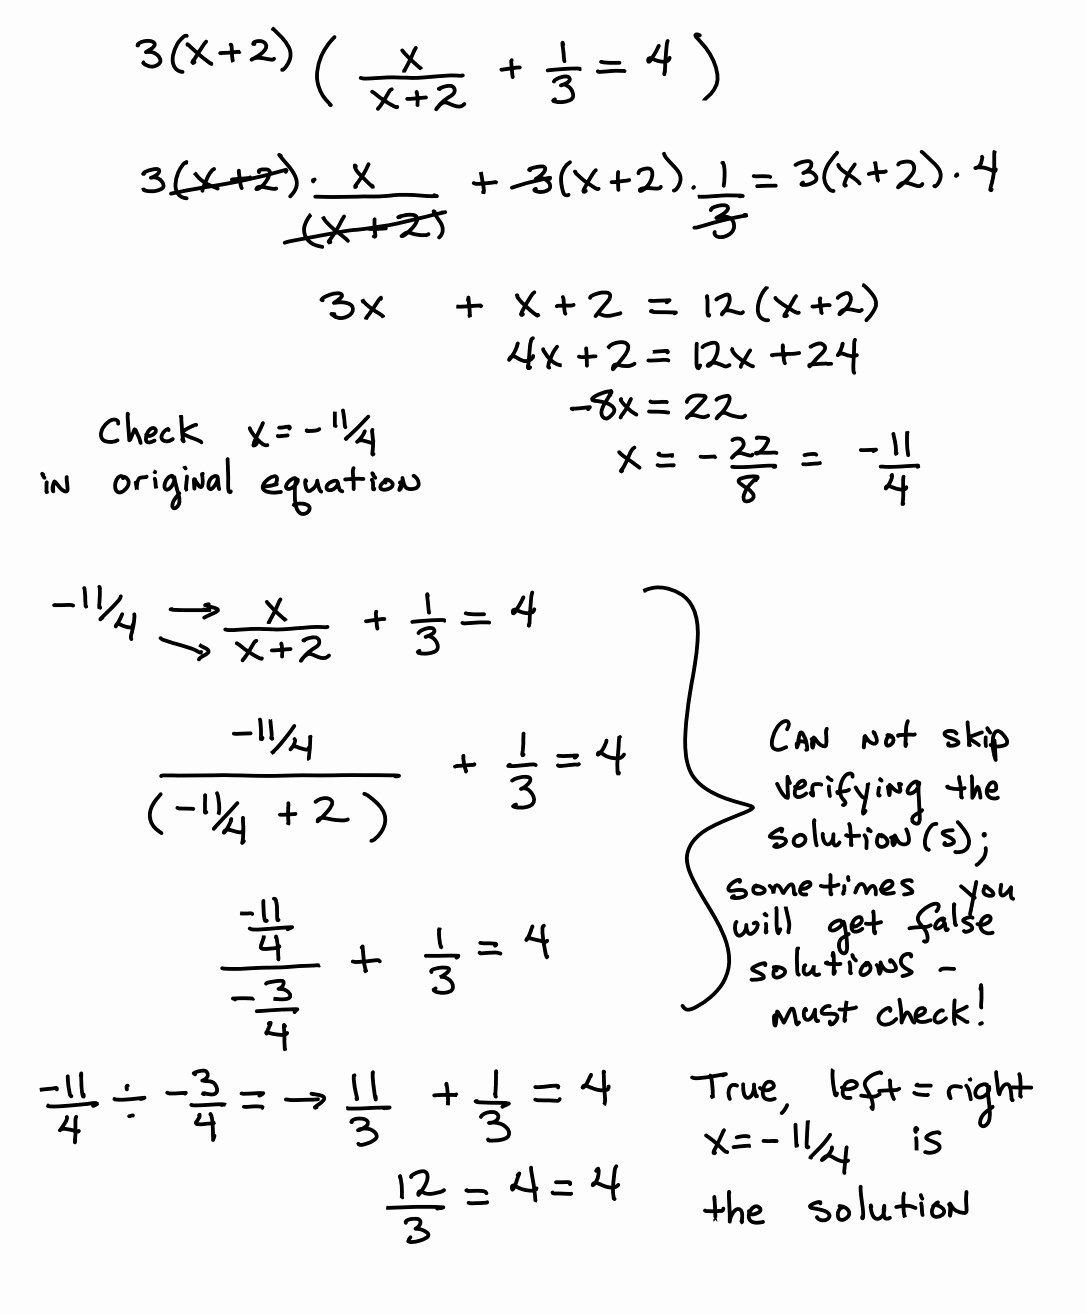 3(x+2) ( x/(x+2) + 1/3 = 4 )
3(x+2) · x/(x+2) + 3(x+2) · 1/3 = 3(x+2) · 4
3x + x + 2 = 12(x+2)
4x + 2 = 12x + 24
-8x = 22
x = - 22/8 = -11/4
Check x = -11/4
in original equation
-11/4 → x/(x+2) + 1/3 = 4
-11/4 / (-11/4 + 2) + 1/3 = 4
(-11/4) / (-3/4) + 1/3 = 4
Can not skip
verifying the
solution(s);
sometimes you
will get false
solutions -
must check!
-11/4 ÷ -3/4 = → 11/3 + 1/3 = 4
12/3 = 4 = 4
True, left = right
x = -11/4 is
the solution